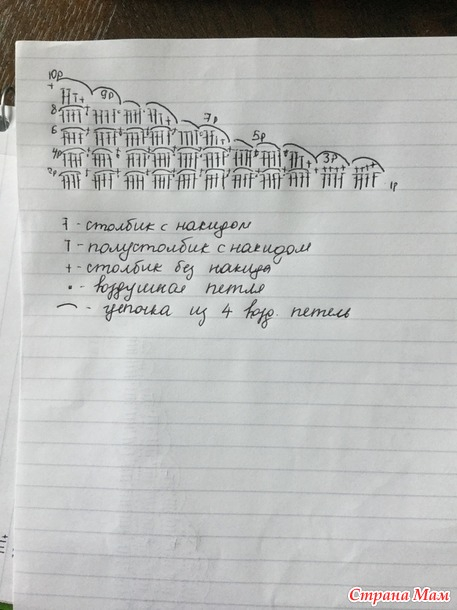 10р
9р
8
7р
6
5р
4р
3р
2р
1р
- столбик с накидом
- полустолбик с накидом
+ - столбик без накида
• - воздушная петля
- цепочка из 4 возд. петель
Страна Мам